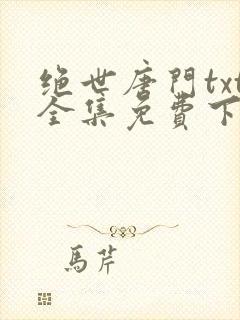 绝世唐門txt
全集免費下
馬芹